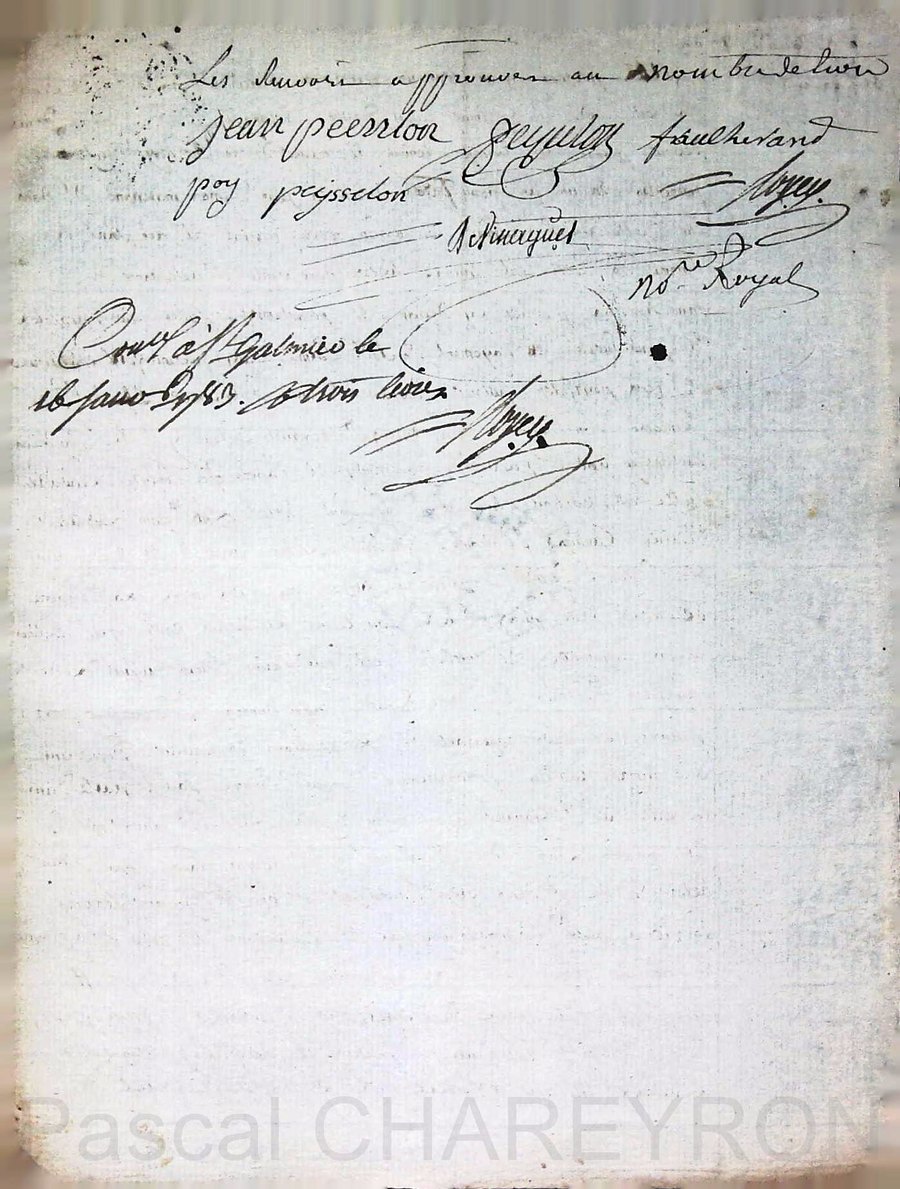 Les renvois approuvez au nombre de trois
jean peysselon peysselon faulherand
poy peysselon Noyer
not.re Royal
Con.lé à St Galmier le
16 janv 1783. R trois livres
Noyer
Pascal CHAREYRON